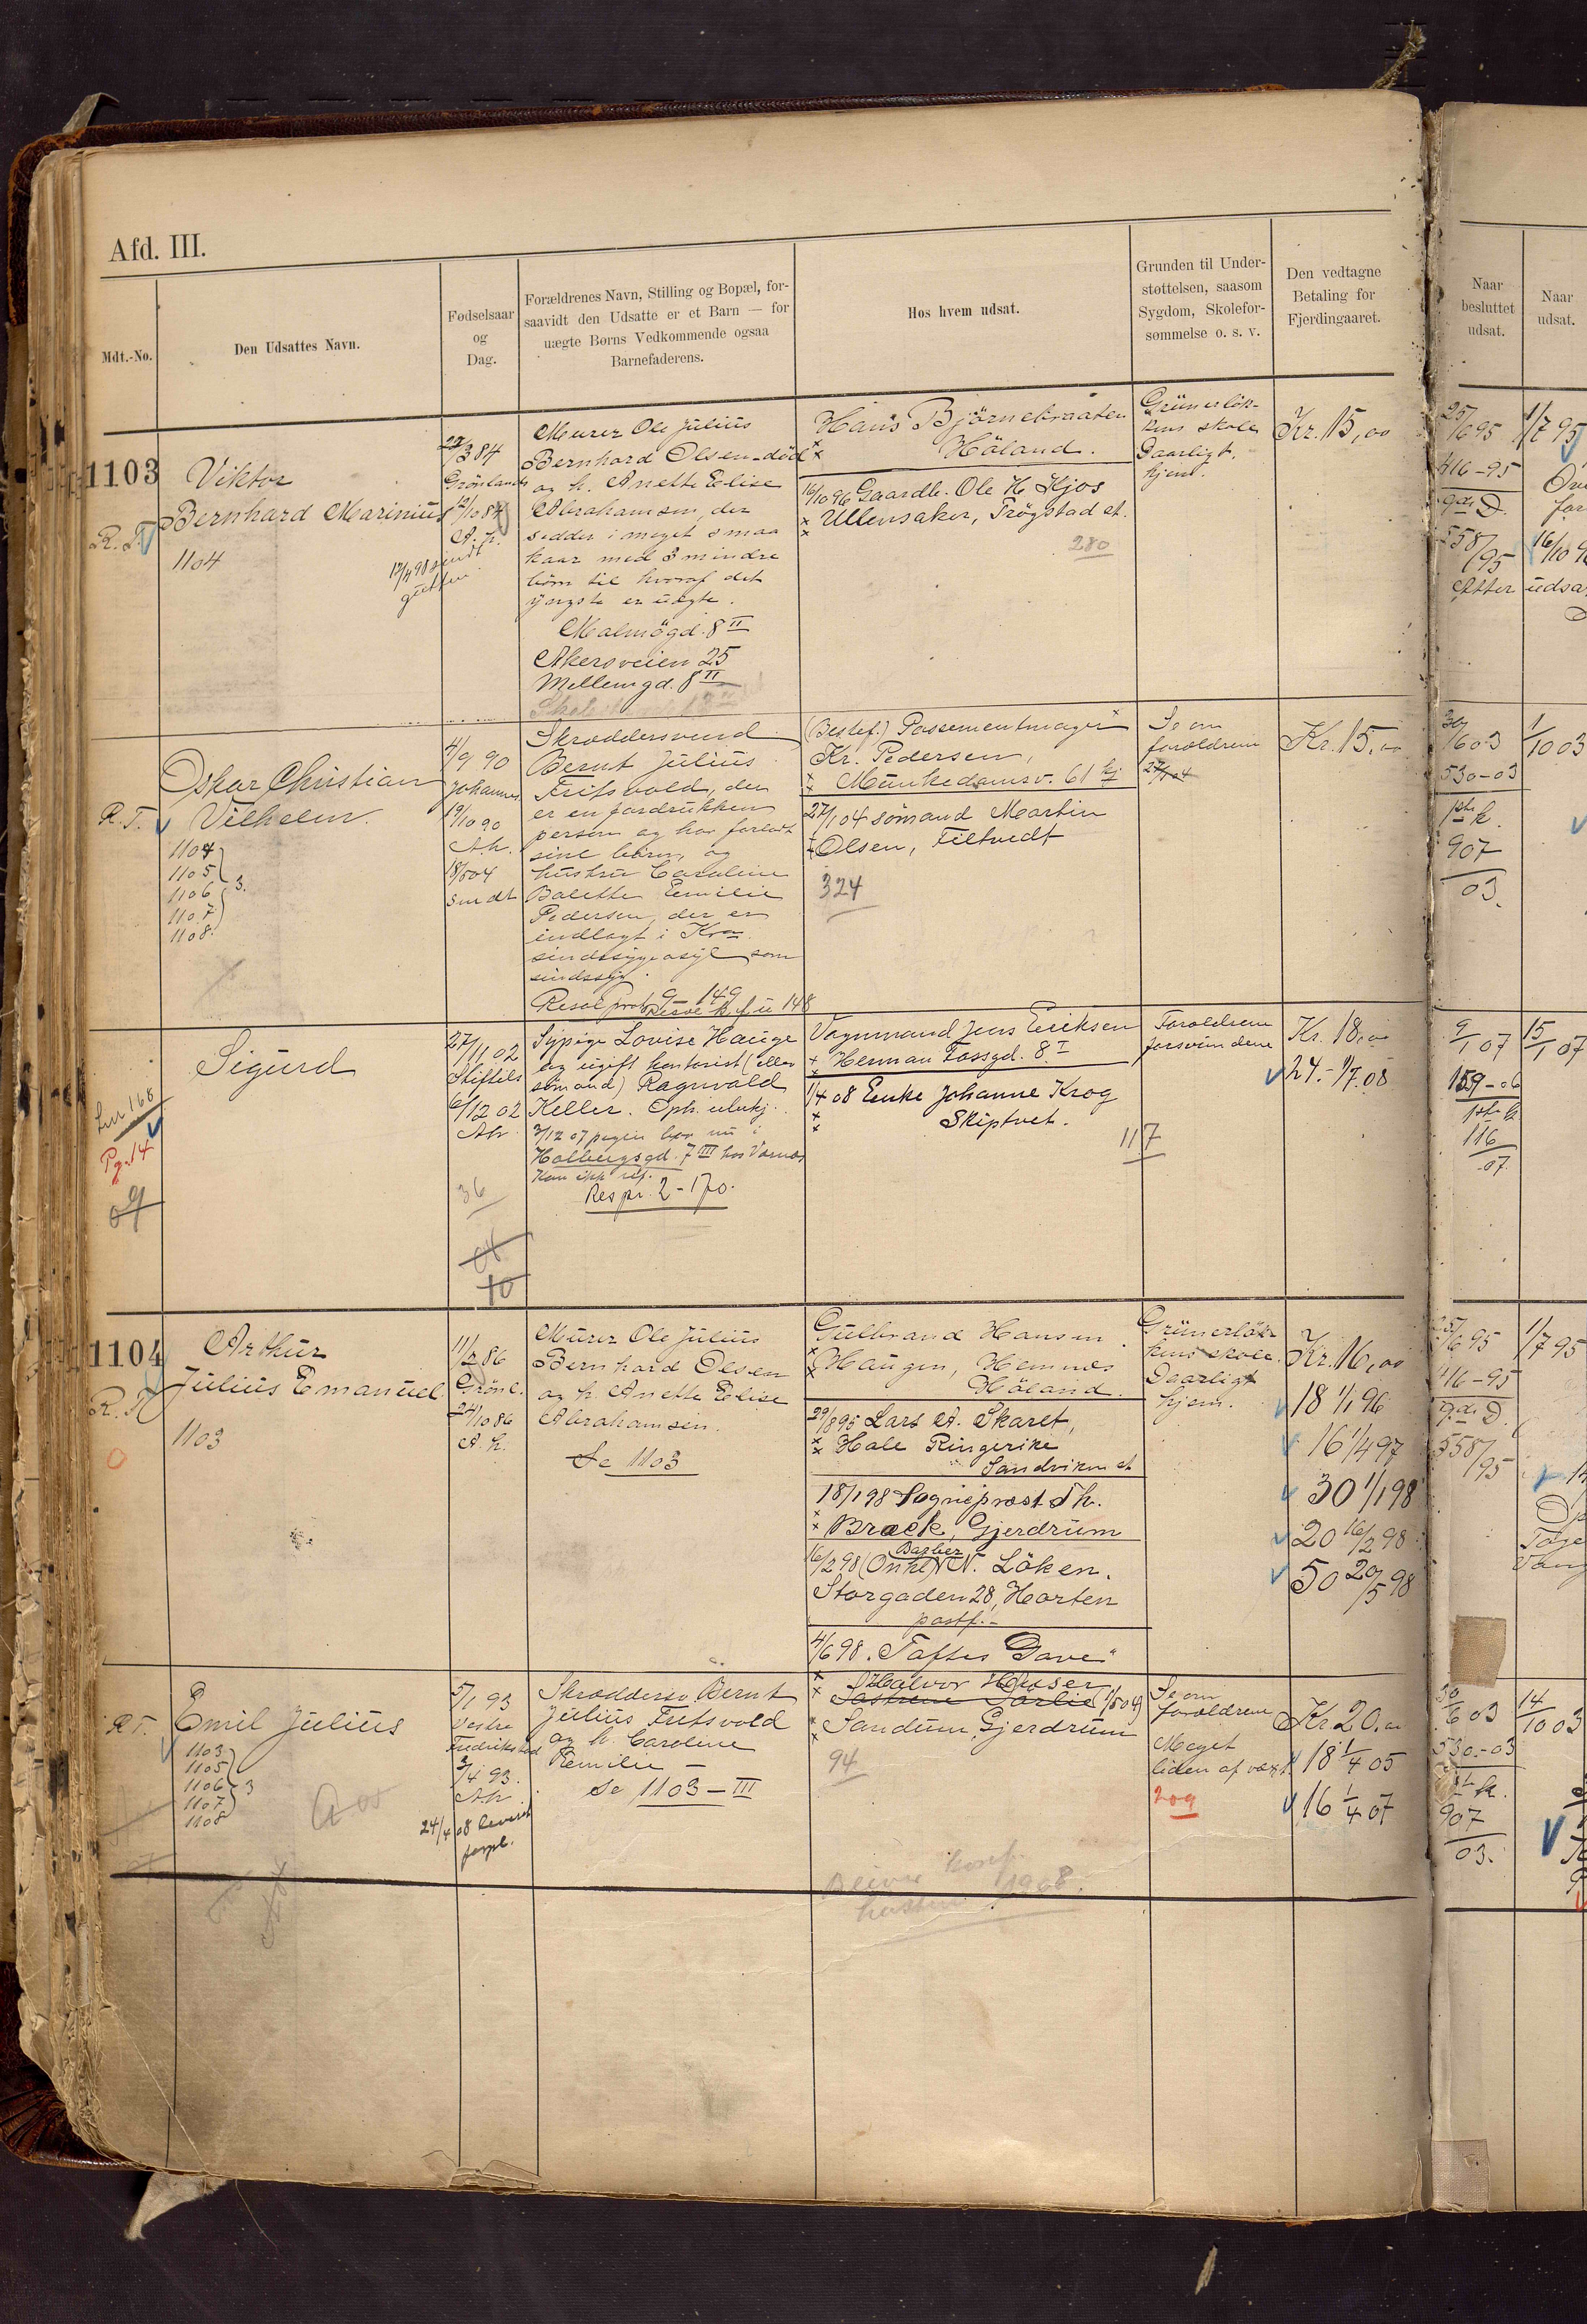 Afd. III.
Mdt.-No.
Den Udsattes Navn.
Fødselsaar
og
Dag.
Forældrenes Navn, Stilling og Bopæl, for-
saavidt den Udsatte er et Barn — for
uægte Børns Vedkommende ogsaa
Barnefaderens.
Hos hvem udsat.
Grunden til Under-
støttelsen, saasom
Sygdom, Skolefor-
sømmelse o. s. v.
Den vedtagne
Betaling for
Fjerdingaaret.
Naar
besluttet
udsat.
Naar
udsat.
1103
R. T.
Viktor
Bernhard Marinius
1104
27/3 84
Grönlands
12/10 84
A. h.
12/4 98 sendt
gutten
Murer Ole Julius
Bernhard Olsen - död
og h. Anette Elise
Abrahamsen, der
sidder i meget smaa
kaar med 3 mindre
börn til hvoraf det
yngste er uægte.
Malmögd. 8 II
Akersveien 25
Mellemgd. 8 II
Hans Björnebraaten
Höland.
16/10 96 Gaardb. Ole H. Kjos
Ullensaker, Trögstad st.
280
Grünerløk-
kens skole
Daarligt
hjem.
Kr. 15,00
25/6 95
416-95
9de D.
558/95
Atter udsa
1/7 95
16/10 9
R. T.
Oskar Christian
Vilhelm.
1104
1105
1106
1107
1108
3.
4/9 90
Johannes
19/10 90
A.h.
18/5 04
sendt
Skræddersvend
Bernt Julius
Fritsvold, der
er en fordrukken
person og har forladt
sine börn, og
hustru Caroline
Balette Emilie
Pedersen, der er
indlagt i Kra.
sindssygeasyl som
sindssyg.
Resol prot 9-149
148
(Bestef.) Possementmager
Kr. Pedersen,
Munkedamsv. 61 kj
27/1 04 sömand Martin
Olsen, Filtvedt
324
Se om
forældrene
27/1 04
Kr. 15,00
30/6 03
530-03
1ste k.
907
03.
1/10 03
Pg. 14
09
Sigurd
27/11 02
Stiftels
6/12 02
Ah
36
10
Sypige Lovise Hauge
og ugift kontorist (eller
sömand) Ragnvald
Keller. Oph. ubekj.
3/12 07 pigen bor nu i
Holbergsgd. 7 III hos
Kan ikke
Res pr. 2-170.
Vognmand Jens Eriksen
Herman Fossgd. 8 I
1/4 08 Enke Johanne Krog
Skiptvet.
117
Forældrene
forsvundene
Kr. 18,00
24.- 1/7.08
9/1 07
159-06
1ste k
116
07.
15/1 07
1104
R. T.
Arthur
Julius Emanuel
1103
11/2 86
Grönl.
24/10 86
A. h.
Murer Ole Julius
Bernhard Olsen
og h. Anette Elise
Abrahamsen.
Se 1103
Gulbrand Hansen
Haugen, Hemnes
Höland.
29/8 95 Lars A. Skaret,
Hole Ringerike
Sandviken st
18/1 98 Sogneprest Th.
Brock, Gjerdrum
Barber
16/2 98 (Onkel) N. Löken.
Storgaden 28, Horten
postf.-
4/6 98. "Toftes Gave"
Grünerløk-
kens skole.
Daarligt
hjem.
Kr. 16,00
18 1/1 96
16 1/4 97
30 1/1 98
20 16/2 98
50 20/5 98
25/6 95
416-95
9de D.
558/95
1/7 95
R T.
Emil Julius
1103
1105
1106
1107
1108
3
5/1 93
Vestre
Fredrikstad
3/4 93.
Ah
24/4 08 leveret
forpl.
Skræddersv. Bernt
Julius Fritsvold
og h. Caroline
Emilie -
Se 1103-III
Halvor
(1/5 04)
Sandum Gjerdrum
94
Blir
1908.
Se om
forældrene
Meget
liden af vext.
209
Kr. 20,00
18 1/4 05
16 1/4 07
30/6 03
530.-03
1ste k.
907
03.
14/10 03